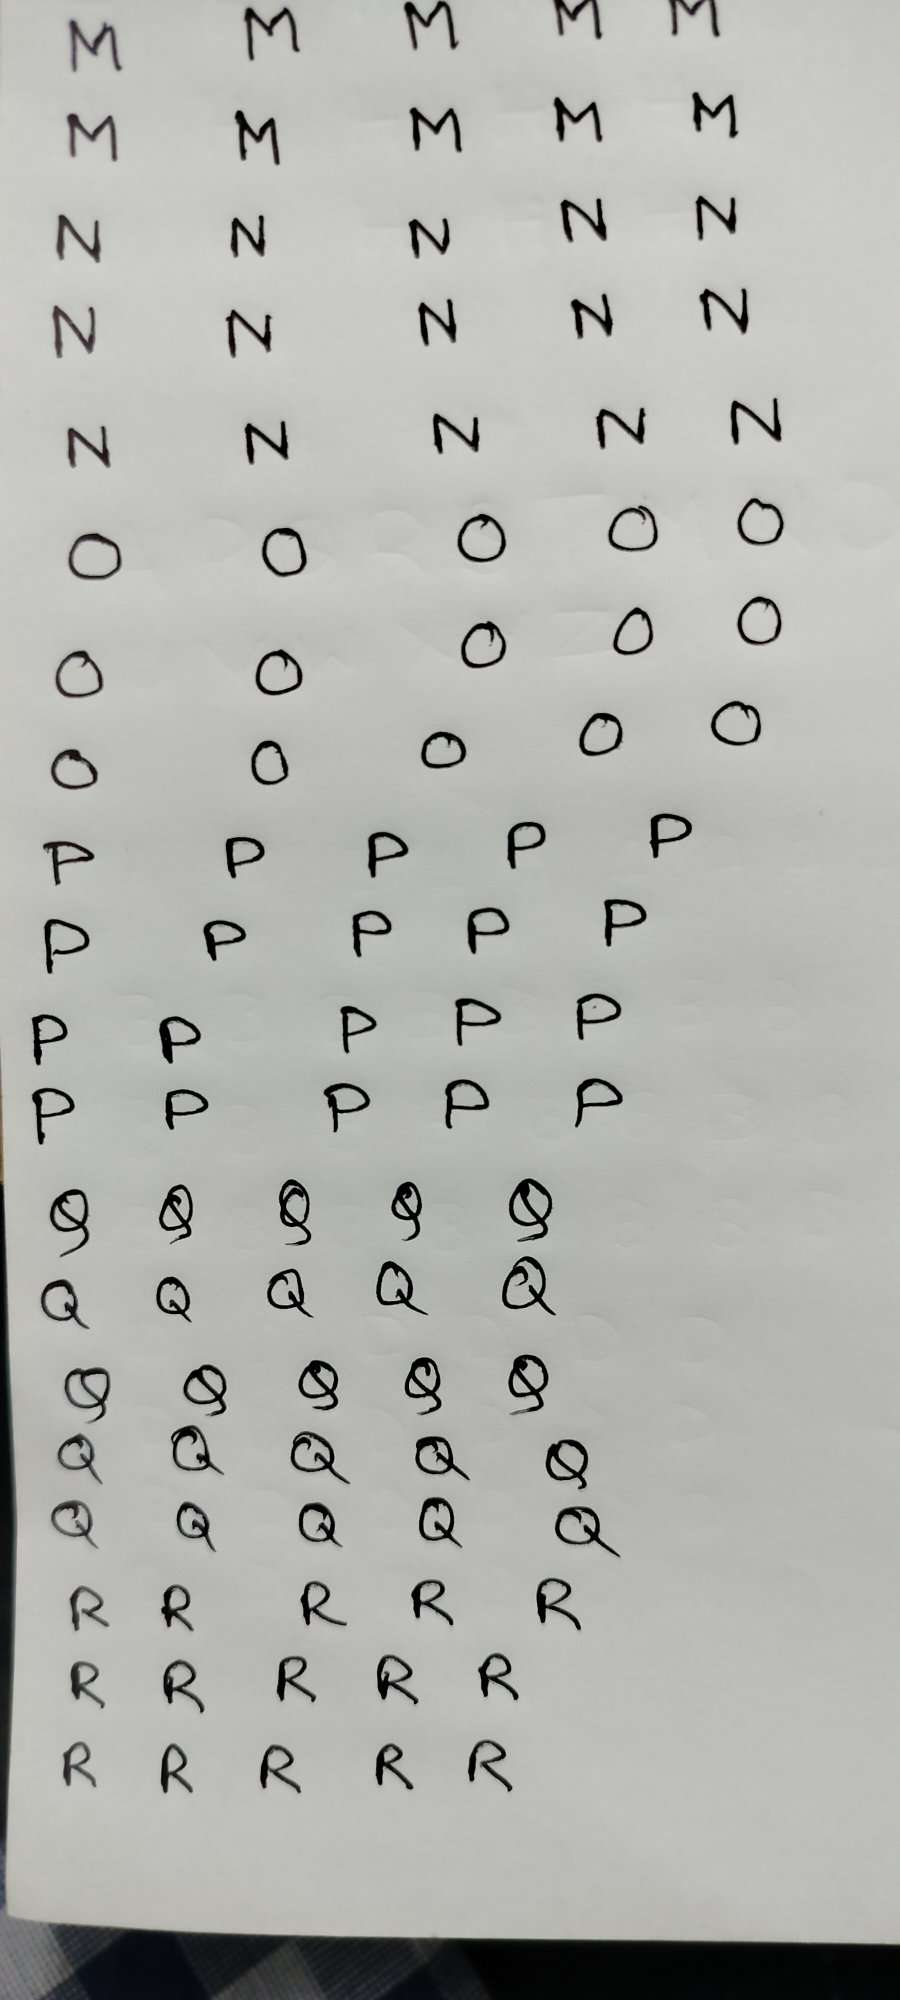 M M M M M
M M M M M
N N N N N
N N N N N
N N N N N
O O O O O
O O O O O
O O O O O
P P P P P
P P P P P
P P P P P
P P P P P
Q Q Q Q Q
Q Q Q Q Q
Q Q Q Q Q
Q Q Q Q Q
Q Q Q Q Q
R R R R R
R R R R R
R R R R R